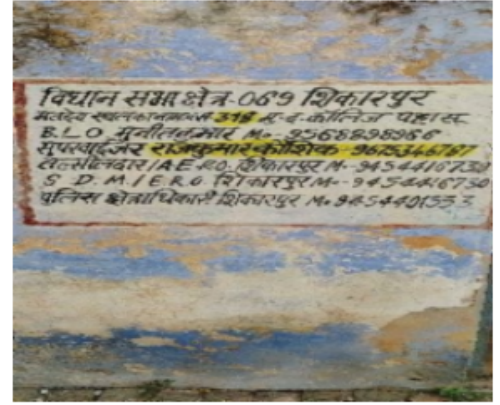 विधान सभा क्षेत्र-069 शिकारपुर
मतदेय स्थल का नाम 316 म.द. कालिज पहासू
B.L.O मुनीत कुमार M.- 9568898966
सुपरवाईजर राजकुमार कौशिक - 9675346787
तहसीलदार/A.E.R.O. शिकारपुर M.- 9454416730
S D.M./E R O शिकारपुर M.- 9454416750
पुलिस क्षेत्राधिकारी शिकारपुर M. 9454401553